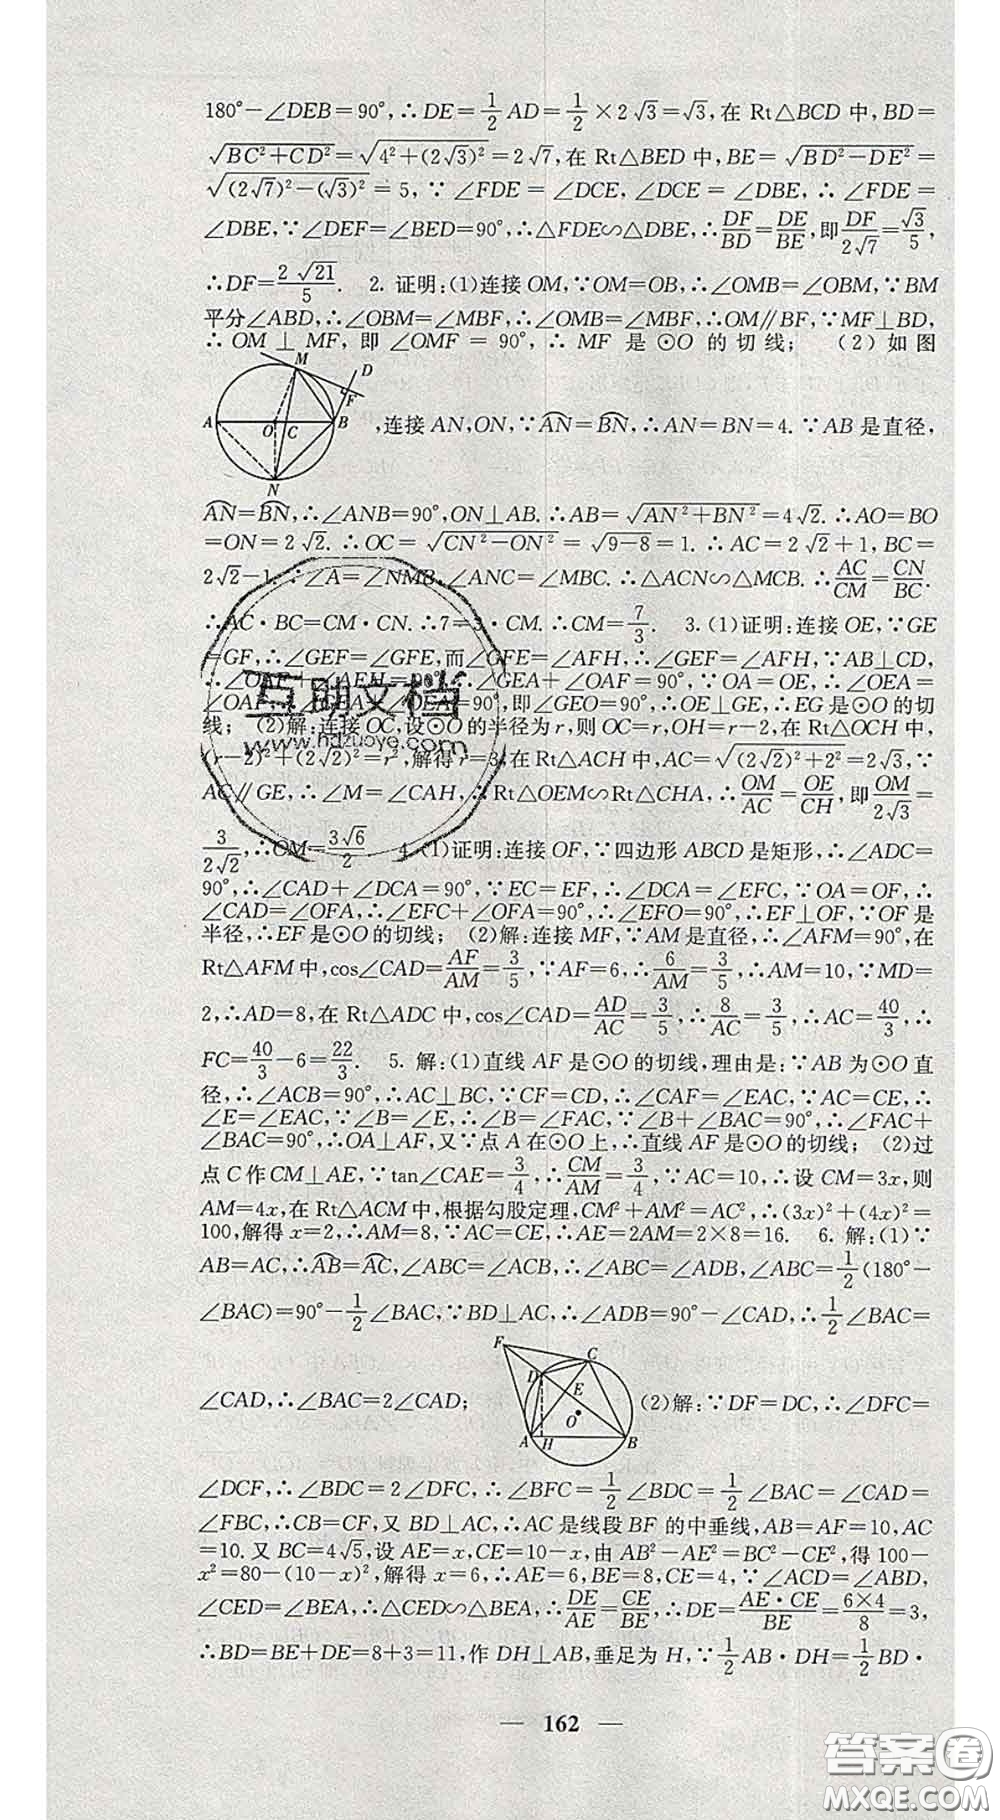 180°－∠DEB＝90°,∴DE＝1/2 AD＝1/2×2√3＝√3,在 Rt△BCD 中,BD＝
√(BC²＋CD²)＝√(4²＋(2√3)²)＝2√7,在 Rt△BED 中,BE＝√(BD²－DE²)＝
√((2√7)²－(√3)²)＝5,∵∠FDE＝∠DCE,∠DCE＝∠DBE,∴∠FDE＝
∠DBE,∵∠DEF＝∠BED＝90°,∴△FDE∽△DBE,∴DF/BD＝DE/BE,即DF/2√7＝√3/5,
∴DF＝2√21/5. 2. 证明:(1)连接 OM,∵OM＝OB,∴∠OMB＝∠OBM,∵BM
平分∠ABD,∴∠OBM＝∠MBF,∴∠OMB＝∠MBF,∴OM∥BF,∵MF⊥BD,
∴OM⊥MF,即∠OMF＝90°,∴MF 是⊙O 的切线; (2)如图
M D F A O C B N
,连接 AN,ON,∵AN⌒＝BN⌒,∴AN＝BN＝4.∵AB 是直径,
AN⌒＝BN⌒,∴∠ANB＝90°,ON⊥AB.∴AB＝√(AN²＋BN²)＝4√2.∴AO＝BO
＝ON＝2√2.∴OC＝√(CN²－ON²)＝√(9－8)＝1.∴AC＝2√2＋1,BC＝
2√2－1.∵∠A＝∠NMB,∠ANC＝∠MBC.∴△ACN∽△MCB.∴AC/CM＝CN/BC.
∴AC·BC＝CM·CN.∴7＝3·CM.∴CM＝7/3. 3.(1)证明:连接 OE,∵GE
＝GF,∴∠GEF＝∠GFE,而∠GFE＝∠AFH,∴∠GEF＝∠AFH,∵AB⊥CD,
∴∠OAF＋∠AFH＝90°,∴∠GEA＋∠OAF＝90°,∵OA＝OE,∴∠OEA＝
∠OAF,∴∠GEA＋∠OEA＝90°,即∠GEO＝90°,∴OE⊥GE,∴EG 是⊙O 的切
线; (2)解:连接 OC,设⊙O 的半径为 r,则 OC＝r,OH＝r－2,在 Rt△OCH 中,
(r－2)²＋(2√2)²＝r²,解得 r＝3,在 Rt△ACH 中,AC＝√((2√2)²＋2²)＝2√3,∵
AC∥GE,∴∠M＝∠CAH,∴Rt△OEM∽Rt△CHA,∴OM/AC＝OE/CH,即OM/2√3＝
3/2√2,∴OM＝3√6/2 4.(1)证明:连接 OF,∵四边形 ABCD 是矩形,∴∠ADC＝
90°,∴∠CAD＋∠DCA＝90°,∵EC＝EF,∴∠DCA＝∠EFC,∵OA＝OF,∴
∠CAD＝∠OFA,∴∠EFC＋∠OFA＝90°,∴∠EFO＝90°,∴EF⊥OF,∵OF 是
半径,∴EF 是⊙O 的切线; (2)解:连接 MF,∵AM 是直径,∴∠AFM＝90°,在
Rt△AFM 中,cos∠CAD＝AF/AM＝3/5,∵AF＝6,∴6/AM＝3/5,∴AM＝10,∵MD＝
2,∴AD＝8,在 Rt△ADC 中,cos∠CAD＝AD/AC＝3/5,∴8/AC＝3/5,∴AC＝40/3,∴
FC＝40/3－6＝22/3. 5. 解:(1)直线 AF 是⊙O 的切线,理由是:∵AB 为⊙O 直
径,∴∠ACB＝90°,∴AC⊥BC,∵CF＝CD,∴∠CAF＝∠EAC,∵AC＝CE,∴
∠E＝∠EAC,∵∠B＝∠E,∴∠B＝∠FAC,∵∠B＋∠BAC＝90°,∴∠FAC＋
∠BAC＝90°,∴OA⊥AF,又∵点 A 在⊙O 上,∴直线 AF 是⊙O 的切线; (2)过
点 C 作 CM⊥AE,∵tan∠CAE＝3/4,∴CM/AM＝3/4,∵AC＝10,∴设 CM＝3x,则
AM＝4x,在 Rt△ACM 中,根据勾股定理,CM²＋AM²＝AC²,∴(3x)²＋(4x)²＝
100,解得 x＝2,∴AM＝8,∵AC＝CE,∴AE＝2AM＝2×8＝16. 6. 解:(1)∵
AB＝AC,∴AB⌒＝AC⌒,∠ABC＝∠ACB,∴∠ABC＝∠ADB,∠ABC＝1/2(180°－
∠BAC)＝90°－1/2∠BAC,∵BD⊥AC,∴∠ADB＝90°－∠CAD,∴1/2∠BAC＝
∠CAD,∴∠BAC＝2∠CAD;
F C D E O A H B
(2)解:∵DF＝DC,∴∠DFC＝
∠DCF,∴∠BDC＝2∠DFC,∴∠BFC＝1/2∠BDC＝1/2∠BAC＝∠CAD＝
∠FBC,∴CB＝CF,又 BD⊥AC,∴AC 是线段 BF 的中垂线,AB＝AF＝10,AC
＝10.又 BC＝4√5,设 AE＝x,CE＝10－x,由 AB²－AE²＝BC²－CE²,得 100－
x²＝80－(10－x)²,解得 x＝6,∴AE＝6,BE＝8,CE＝4,∵∠ACD＝∠ABD,
∠CED＝∠BEA,∴△CED∽△BEA,∴DE/AE＝CE/BE,∴DE＝AE·CE/BE＝6×4/8＝3,
∴BD＝BE＋DE＝8＋3＝11,作 DH⊥AB,垂足为 H,∵1/2 AB·DH＝1/2 BD·
— 162 —
互助文档
www.hdzuoye.com
答案圈
MXQE.COM